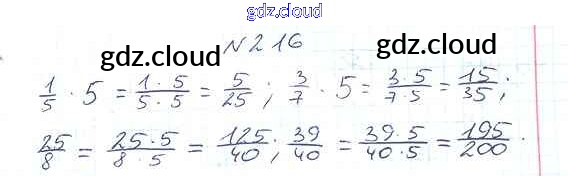 gdz.cloud
N216
gdz.cloud gdz.cloud
1/5 · 5 = 1·5/5·5 = 5/25; 3/7 · 5 = 3·5/7·5 = 15/35;
25/8 = 25·5/8·5 = 125/40; 39/40 = 39·5/40·5 = 195/200.